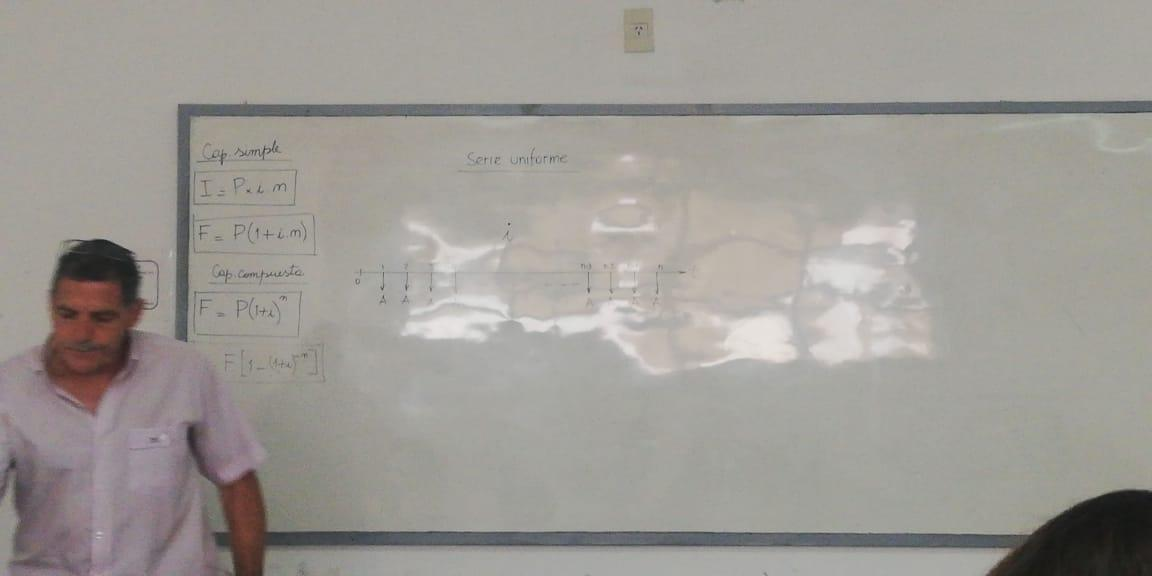 Cap. simple
I = P × i . n
F = P(1 + i.n)
Cap. compuesta
F = P(1+i)^n
F[1-(1+i)^-n]
Serie uniforme
i
0
n
A A